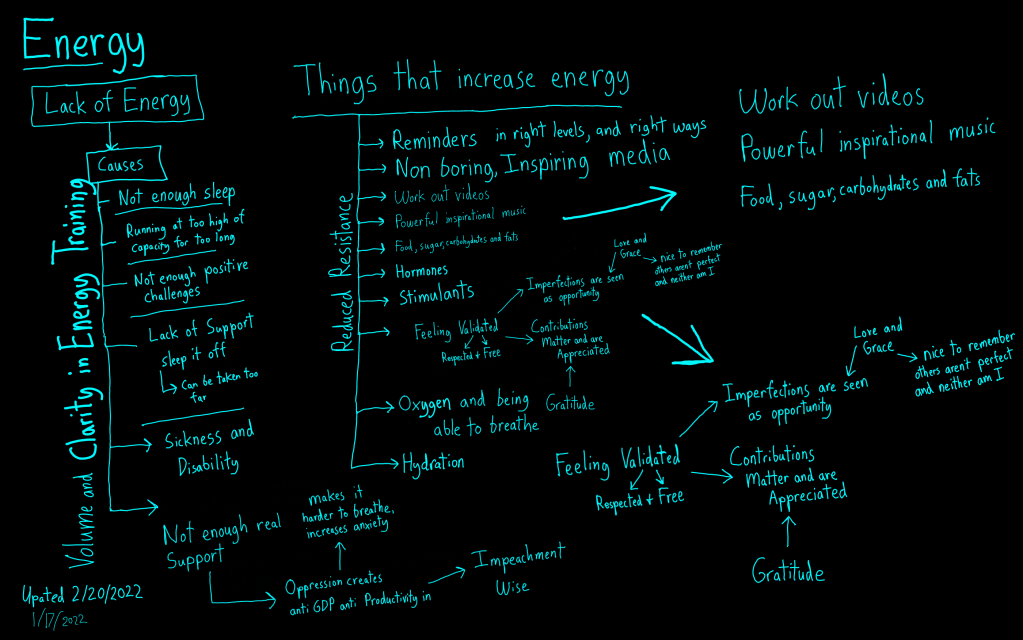 Energy
Lack of Energy
Causes
Not enough sleep
Running at too high of
capacity for too long
Not enough positive
challenges
Lack of Support
sleep it off
Can be taken too
far
Sickness and
Disability
Not enough real
Support
Volume and Clarity in Energy Training
Upated 2/20/2022
1/17/2022
Oppression creates
anti GDP anti Productivity in
makes it
harder to breathe,
increases anxiety
Impeachment
Wise
Things that increase energy
Reduced Resistance
Reminders in right levels, and right ways
Non boring, Inspiring media
Work out videos
Powerful inspirational music
Food, sugar, carbohydrates and fats
Hormones
Stimulants
Feeling Validated
Respected + Free
Imperfections are seen
as opportunity
Love and
Grace
nice to remember
others arent perfect
and neither am I
Contributions
Matter and are
Appreciated
Gratitude
Oxygen and being
able to breathe
Hydration
Work out videos
Powerful inspirational music
Food, sugar, carbohydrates and fats
Feeling Validated
Respected + Free
Imperfections are seen
as opportunity
Love and
Grace
nice to remember
others arent perfect
and neither am I
Contributions
Matter and are
Appreciated
Gratitude